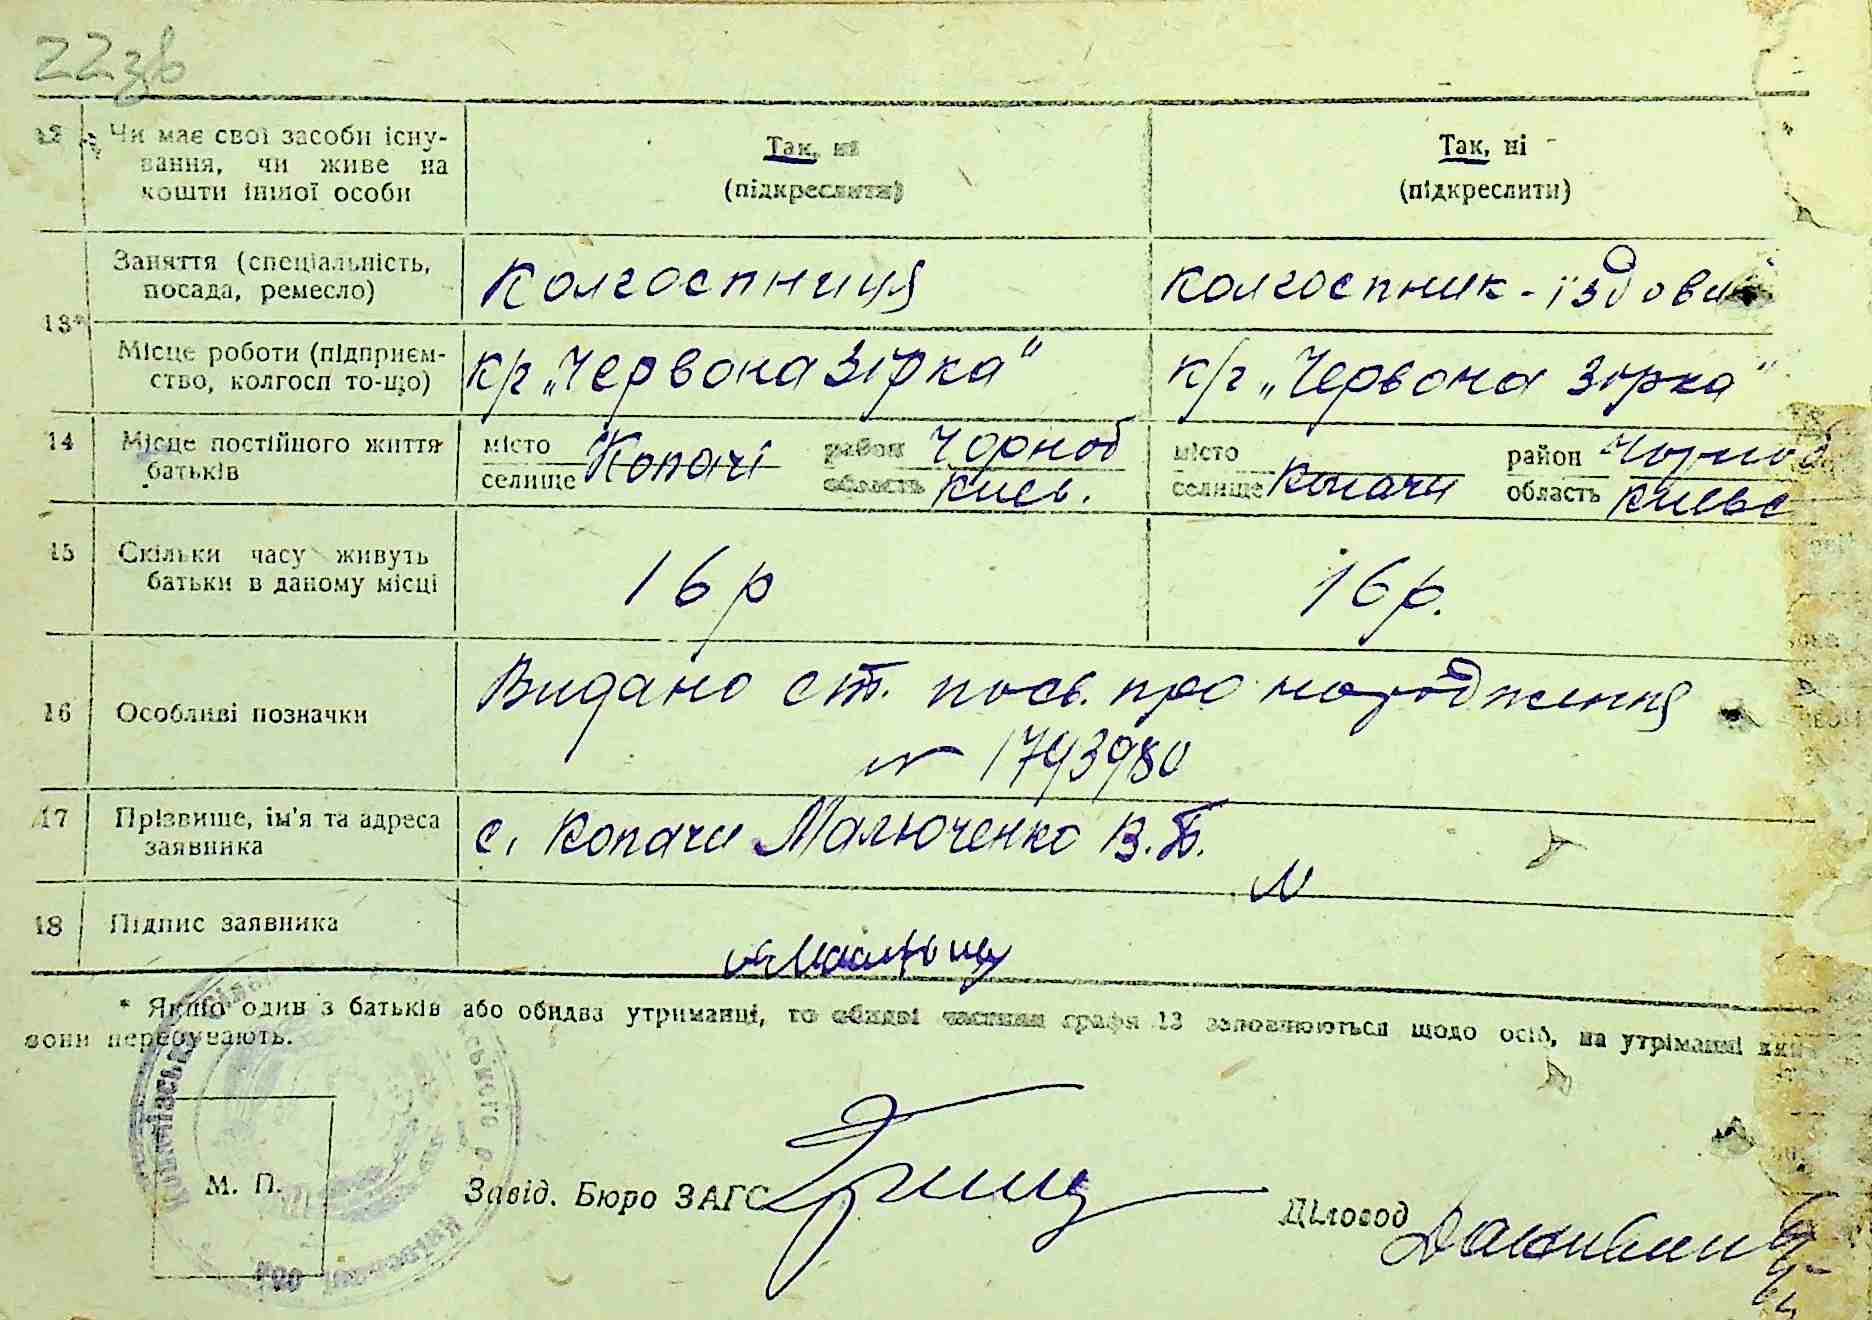 22зв
12 Чи має свої засоби існу-
вання, чи живе на
кошти іншої особи
Так, ні
(підкреслити)
Так, ні
(підкреслити)
13*
Заняття (спеціальність,
посада, ремесло)
Колгоспниця
колгоспник - їздовий
Місце роботи (підприєм-
ство, колгосп то-що)
к/г „Червона Зірка"
к/г „Червона Зірка"
14 Місце постійного життя
батьків
місто
селище Копачі
район Чорноб
область Києв.
місто
селище Копачи
район Чорноб
область Києвс
15 Скільки часу живуть
батьки в даному місці
16 р
16 р.
16 Особливі позначки
Видано ст. посв. про народження
№ 1793980
17 Прізвище, ім'я та адреса
заявника
с. Копачи Малюченко В.
18 Підпис заявника
* Якщо один з батьків або обидва утриманці, то обидві частини графи 13 заповнюються щодо осіб, на утриманні яких
вони перебувають.
М. П.
Завід. Бюро ЗАГС
Діловод
Київської обл.